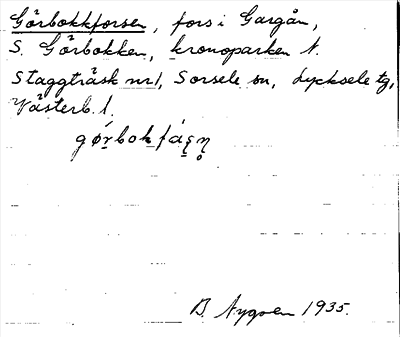 Görbokkforsen, fors i Gargån,
S. Görbokken, kronoparken N.
Staggträsk nr 1, Sorsele sn, Lycksele tg,
Västerb. l.
gørbokfáʂn̥
B. Nygren 1935.